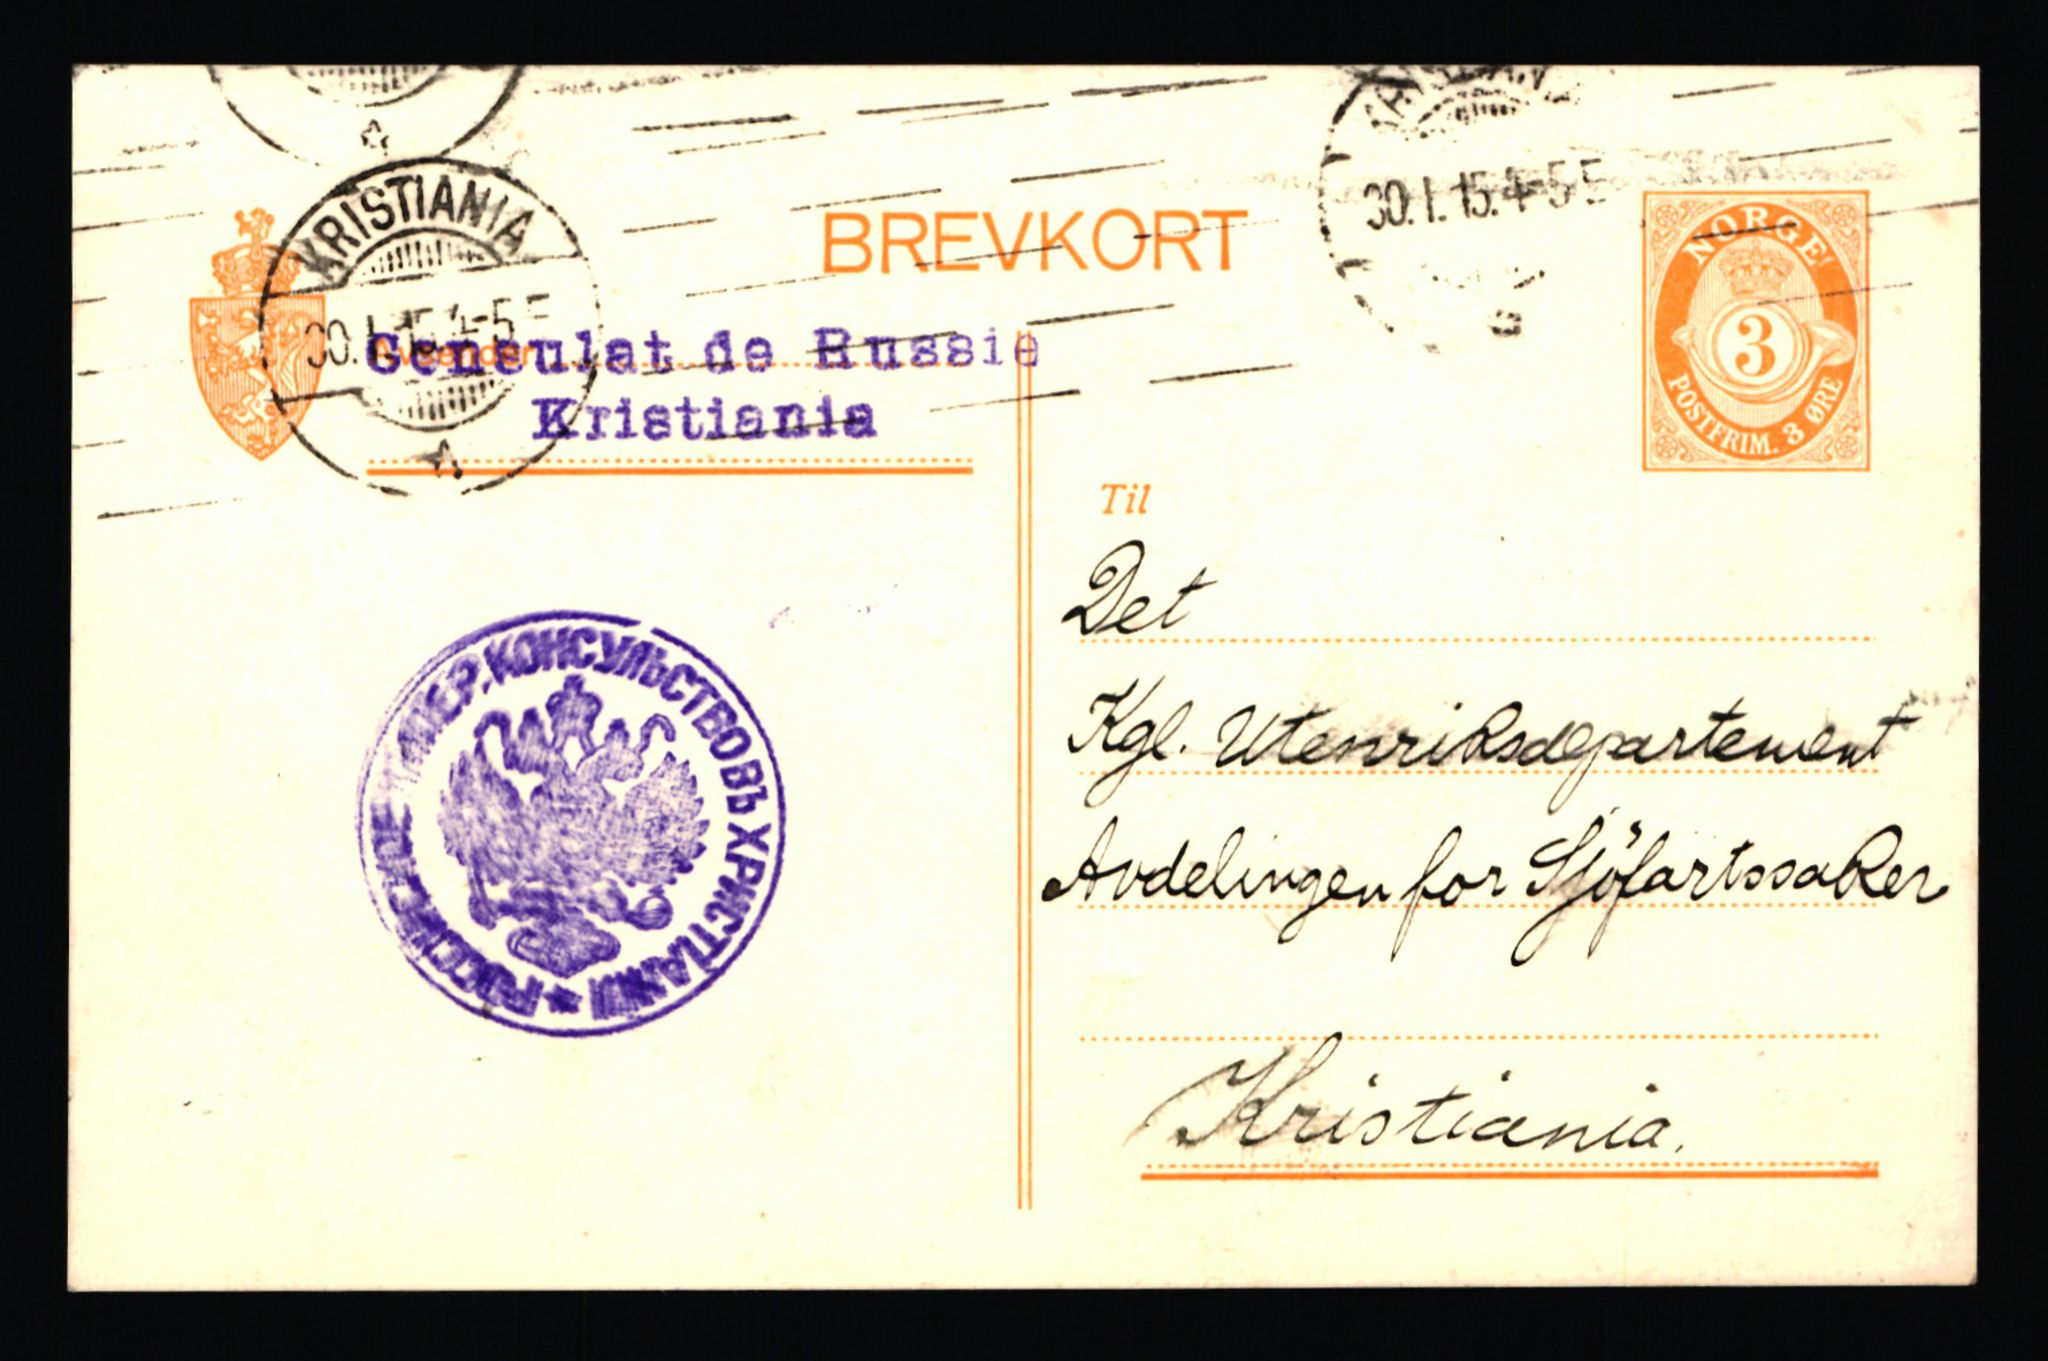 KRISTIANIA
30.I.15.4-5 E
BREVKORT
30.I.15.4-5 E
NORGE
3
POSTFRIM. 3 ØRE
Avsender
Consulat de Russie
Kristiania
Til
Det
Kgl. Utenriksdepartement
Avdelingen for Sjöfartssaker
Kristiania.
РОССІЙСКОЕ ИМПЕР. КОНСУЛЬСТВО ВЪ ХРИСТІАНІИ